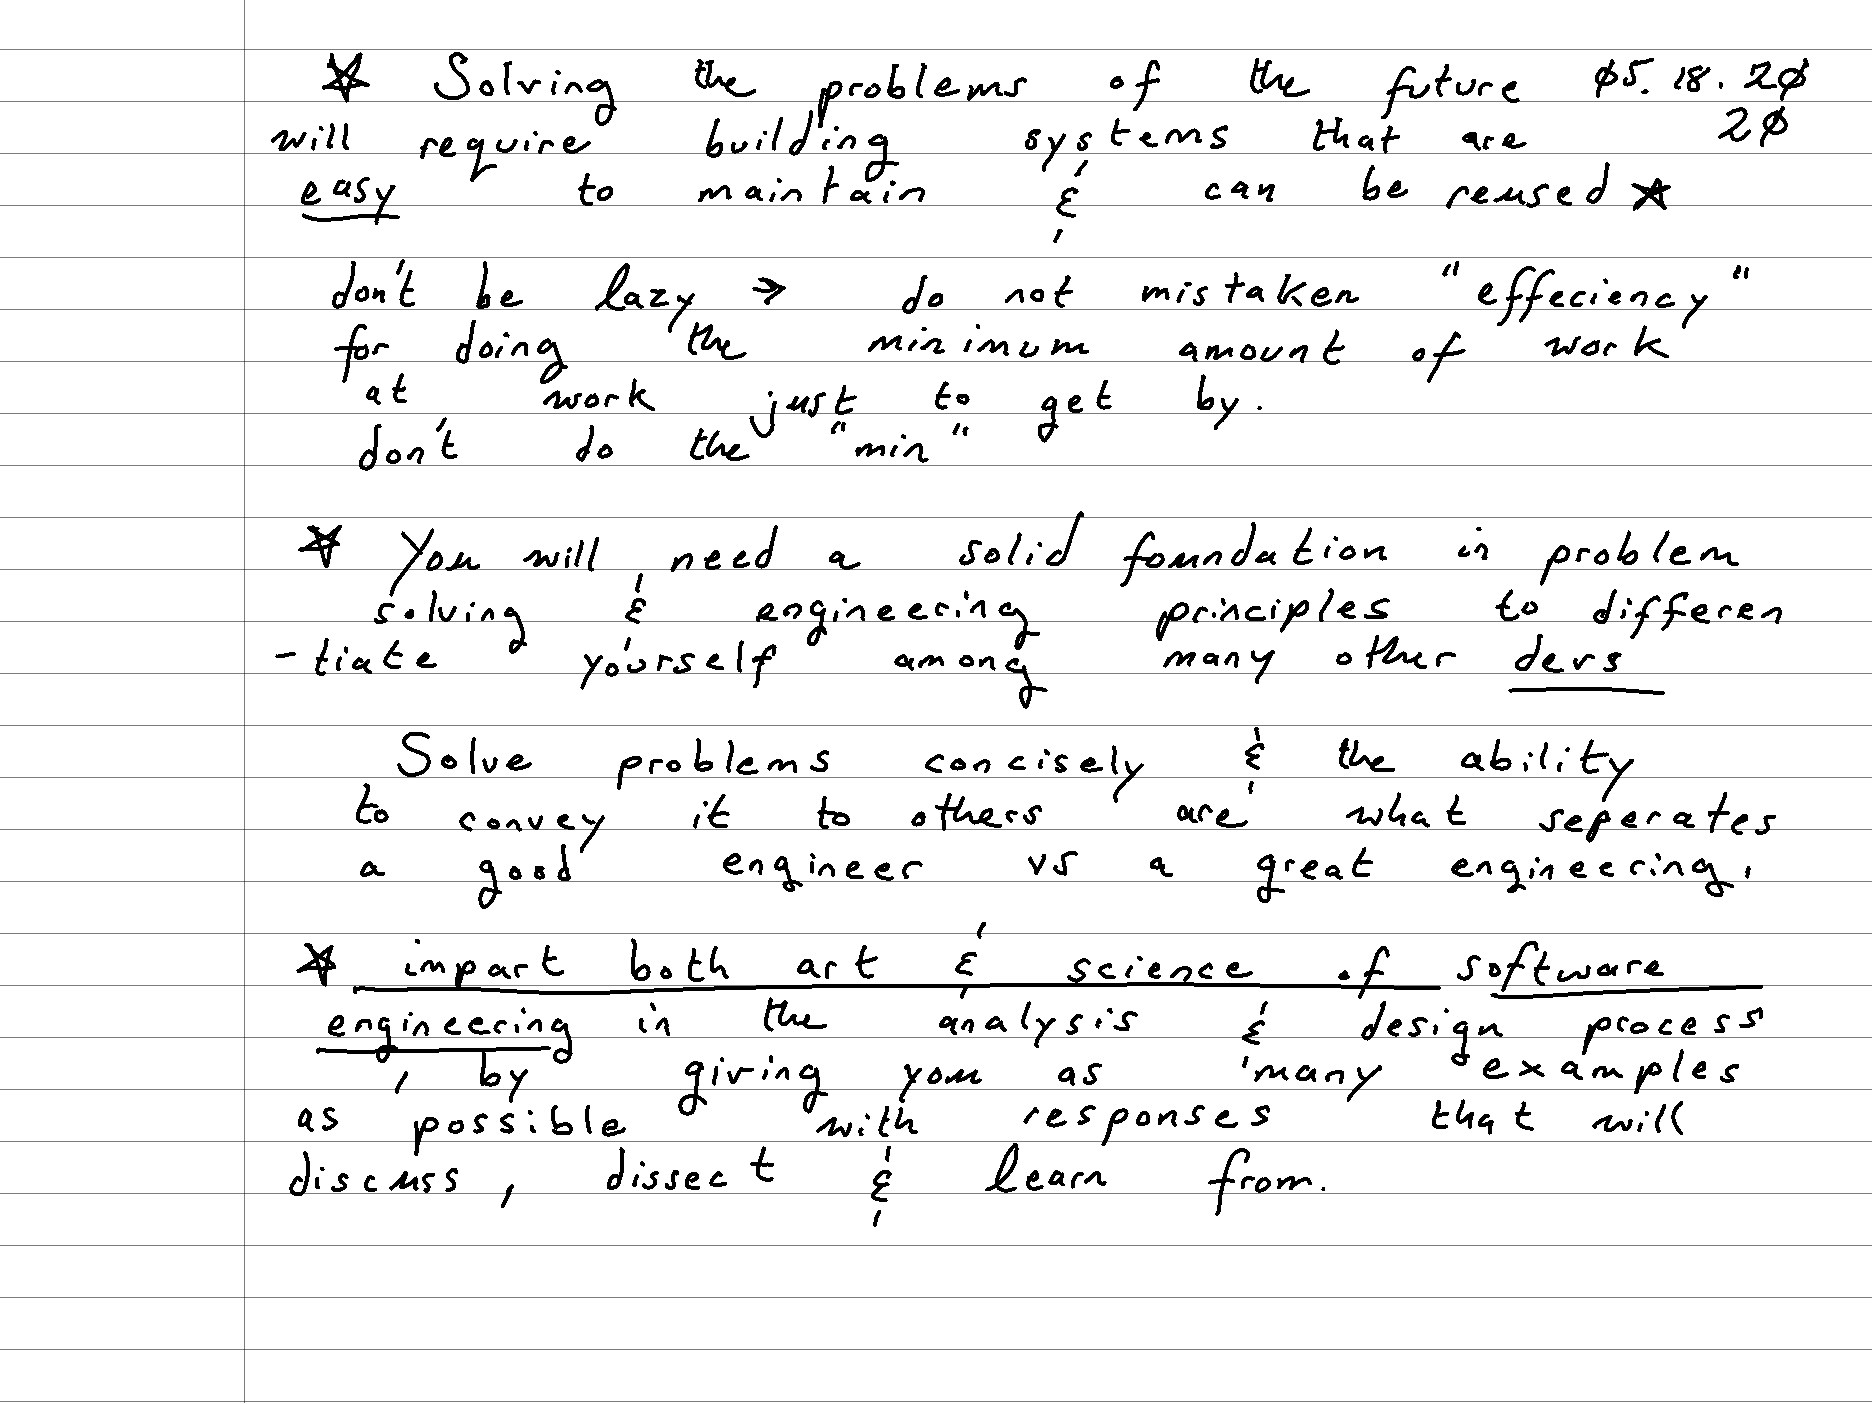 ☆ Solving the problems of the future 05.18.20
will require building systems that are 20
easy to maintain & can be reused ☆
don't be lazy → do not mistaken "effeciency"
for doing the minimum amount of work
at work just to get by.
don't do the "min"
☆ You will need a solid foundation in problem
solving & engineering principles to differen
-tiate yourself among many other devs
Solve problems concisely & the ability
to convey it to others are what seperates
a good engineer vs a great engineering.
☆ impart both art & science of software
engineering in the analysis & design process
, by giving you as many examples
as possible with responses that will
discuss, dissect & learn from.